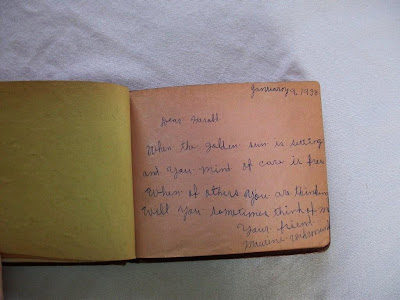 January 9, 1938
Dear Sarah
When the golden sun is setting
and you mind of care is free
When of others you are thinking
Will you sometimes think of me
Your friend
Maurine